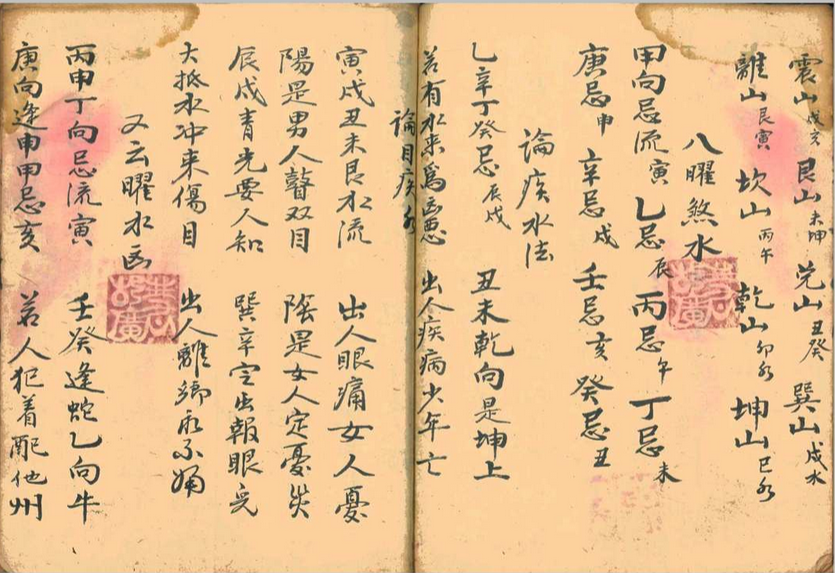 震山戌亥 艮山未坤 兌山丑癸 巽山戍水
離山艮寅 坎山丙午 乾山卯水 坤山巳水
八曜煞水
甲向忌流寅 乙忌辰 丙忌午 丁忌未
庚忌申 辛忌戍 壬忌亥 癸忌丑
論疾水法
乙辛丁癸忌辰戍 丑未乾向是坤上
若有水來為凶惡 出人疾病少年亡
論目疾水
寅戍丑未艮水流 出人眼痛女人憂
陽是男人瞽双目 陰是女人定憂
辰戍青光要人知 巽辛定出報眼
大抵水冲來傷目 出人離鄉永不
又云曜水凶
丙申丁向忌流寅 壬癸逢蛇乙向牛
庚向逢申甲忌亥 若人犯着配他州